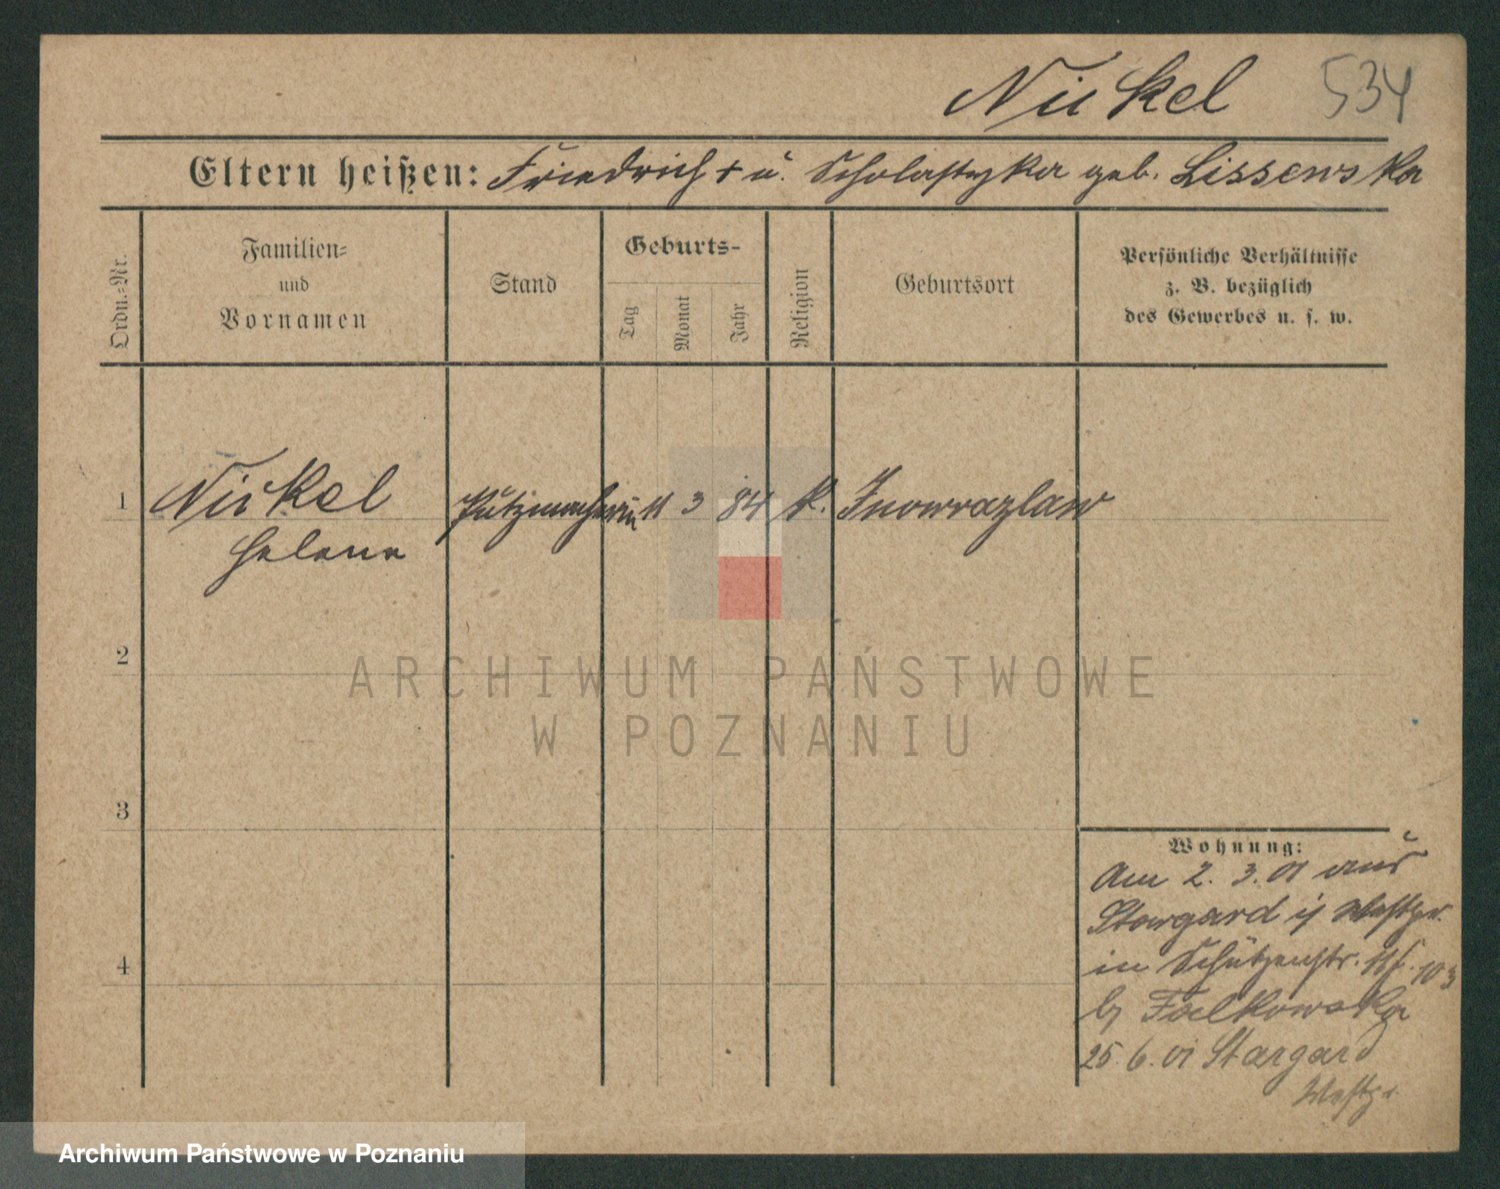 Nickel 534
Eltern heißen: Friedrich + u. Scholastyka geb. Lissewska
Ordn.-Nr.
Familien-
und
Vornamen
Stand
Geburts-
Tag
Monat
Jahr
Religion
Geburtsort
Persönliche Verhältnisse
z. B. bezüglich
des Gewerbes u. s. w.
1 Nickel Putzmacherin 11 3 84 k. Inowrazlaw
Helene
2
3
4
Wohnung:
Am 2. 3. 01 aus
Stargard i/ Westpr.
in Schützenstr.
b/ Falkowska
25. 6. 01 Stargard
Westpr.
ARCHIWUM PAŃSTWOWE
W POZNANIU
Archiwum Państwowe w Poznaniu